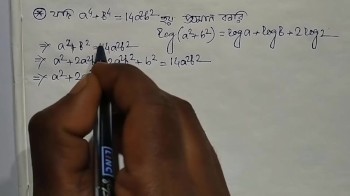 * যদি a⁴+b⁴ = 14a²b² হয় প্রমাণ করি
log(a²+b²) = log a + log b + 2log2
⇒ a²+b² = 14a²b²
⇒ a²+2a²b 2a²b²+b² = 14a²b2
⇒ a²+2
LINC